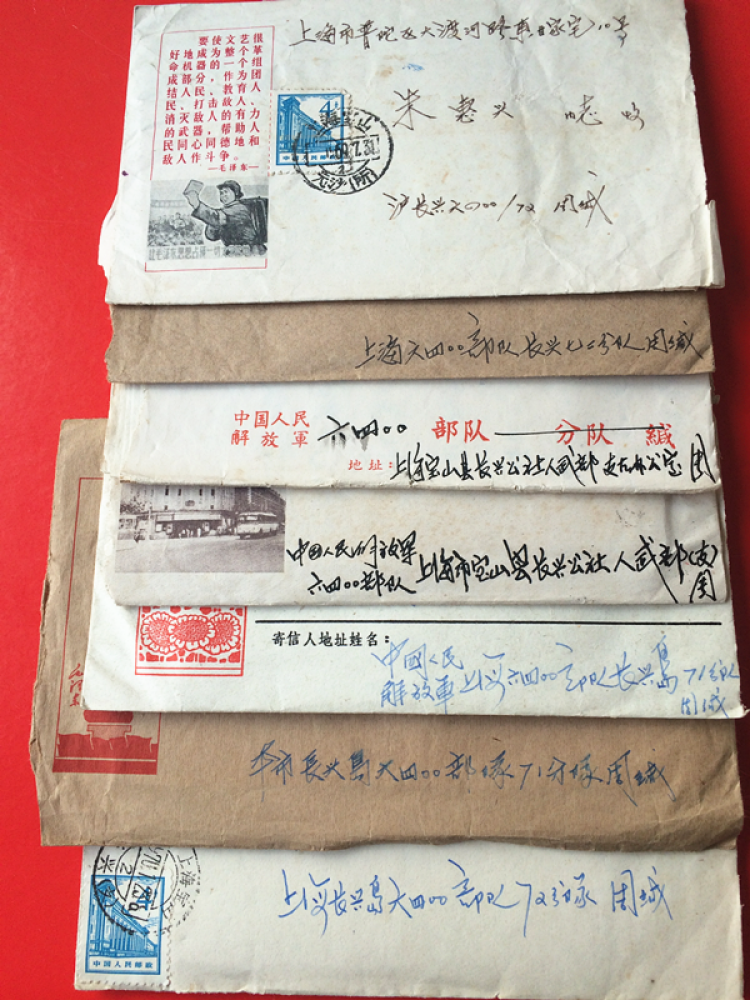 要使文艺很
好地成为整个革
命机器的一个组
成部分,作为团
结人民、教育人
民、打击敌人、
消灭敌人的有力
的武器,帮助人
民同心同德地和
敌人作斗争。
——毛泽东——
上海市普陀区大渡河路
4
中国人民邮政
朱惠兴 同志收
沪长兴六四〇〇/72 周缄
上海六四〇〇部队长兴七二分队周缄
中国人民
解放軍 六四〇〇 部队 分队 緘
地址:上海宝山县长兴公社人武部支左办公室 周
中国人民解放军
六四〇〇部队 上海市宝山县长兴公社人武部(支)
周
寄信人地址姓名:
中國人民
解放軍上海六四〇〇部队长兴島71分队
周缄
本市長兴島六四〇〇部隊71分隊周缄
上海长兴島六四〇〇部队72分隊 周缄
中国人民邮政